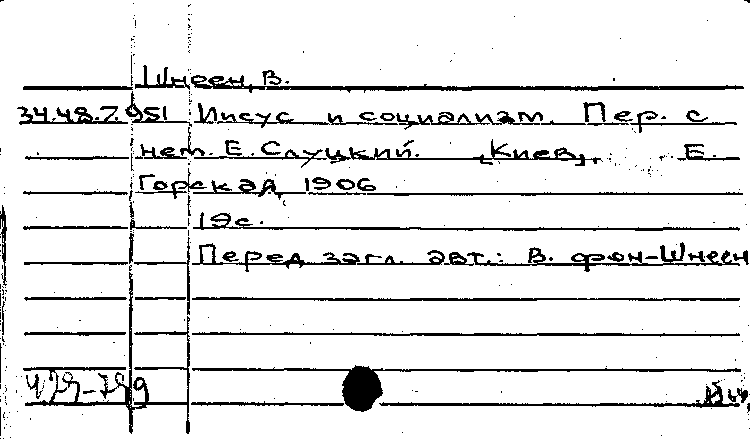 Шнеен, В.
34.48.7.951 Иисус и социализм. Пер. с
нем. Е. Слуцкий. [Киев], Е.
Горская, 1906
19с.
Перед загл. авт.: В. фон-Шнеен